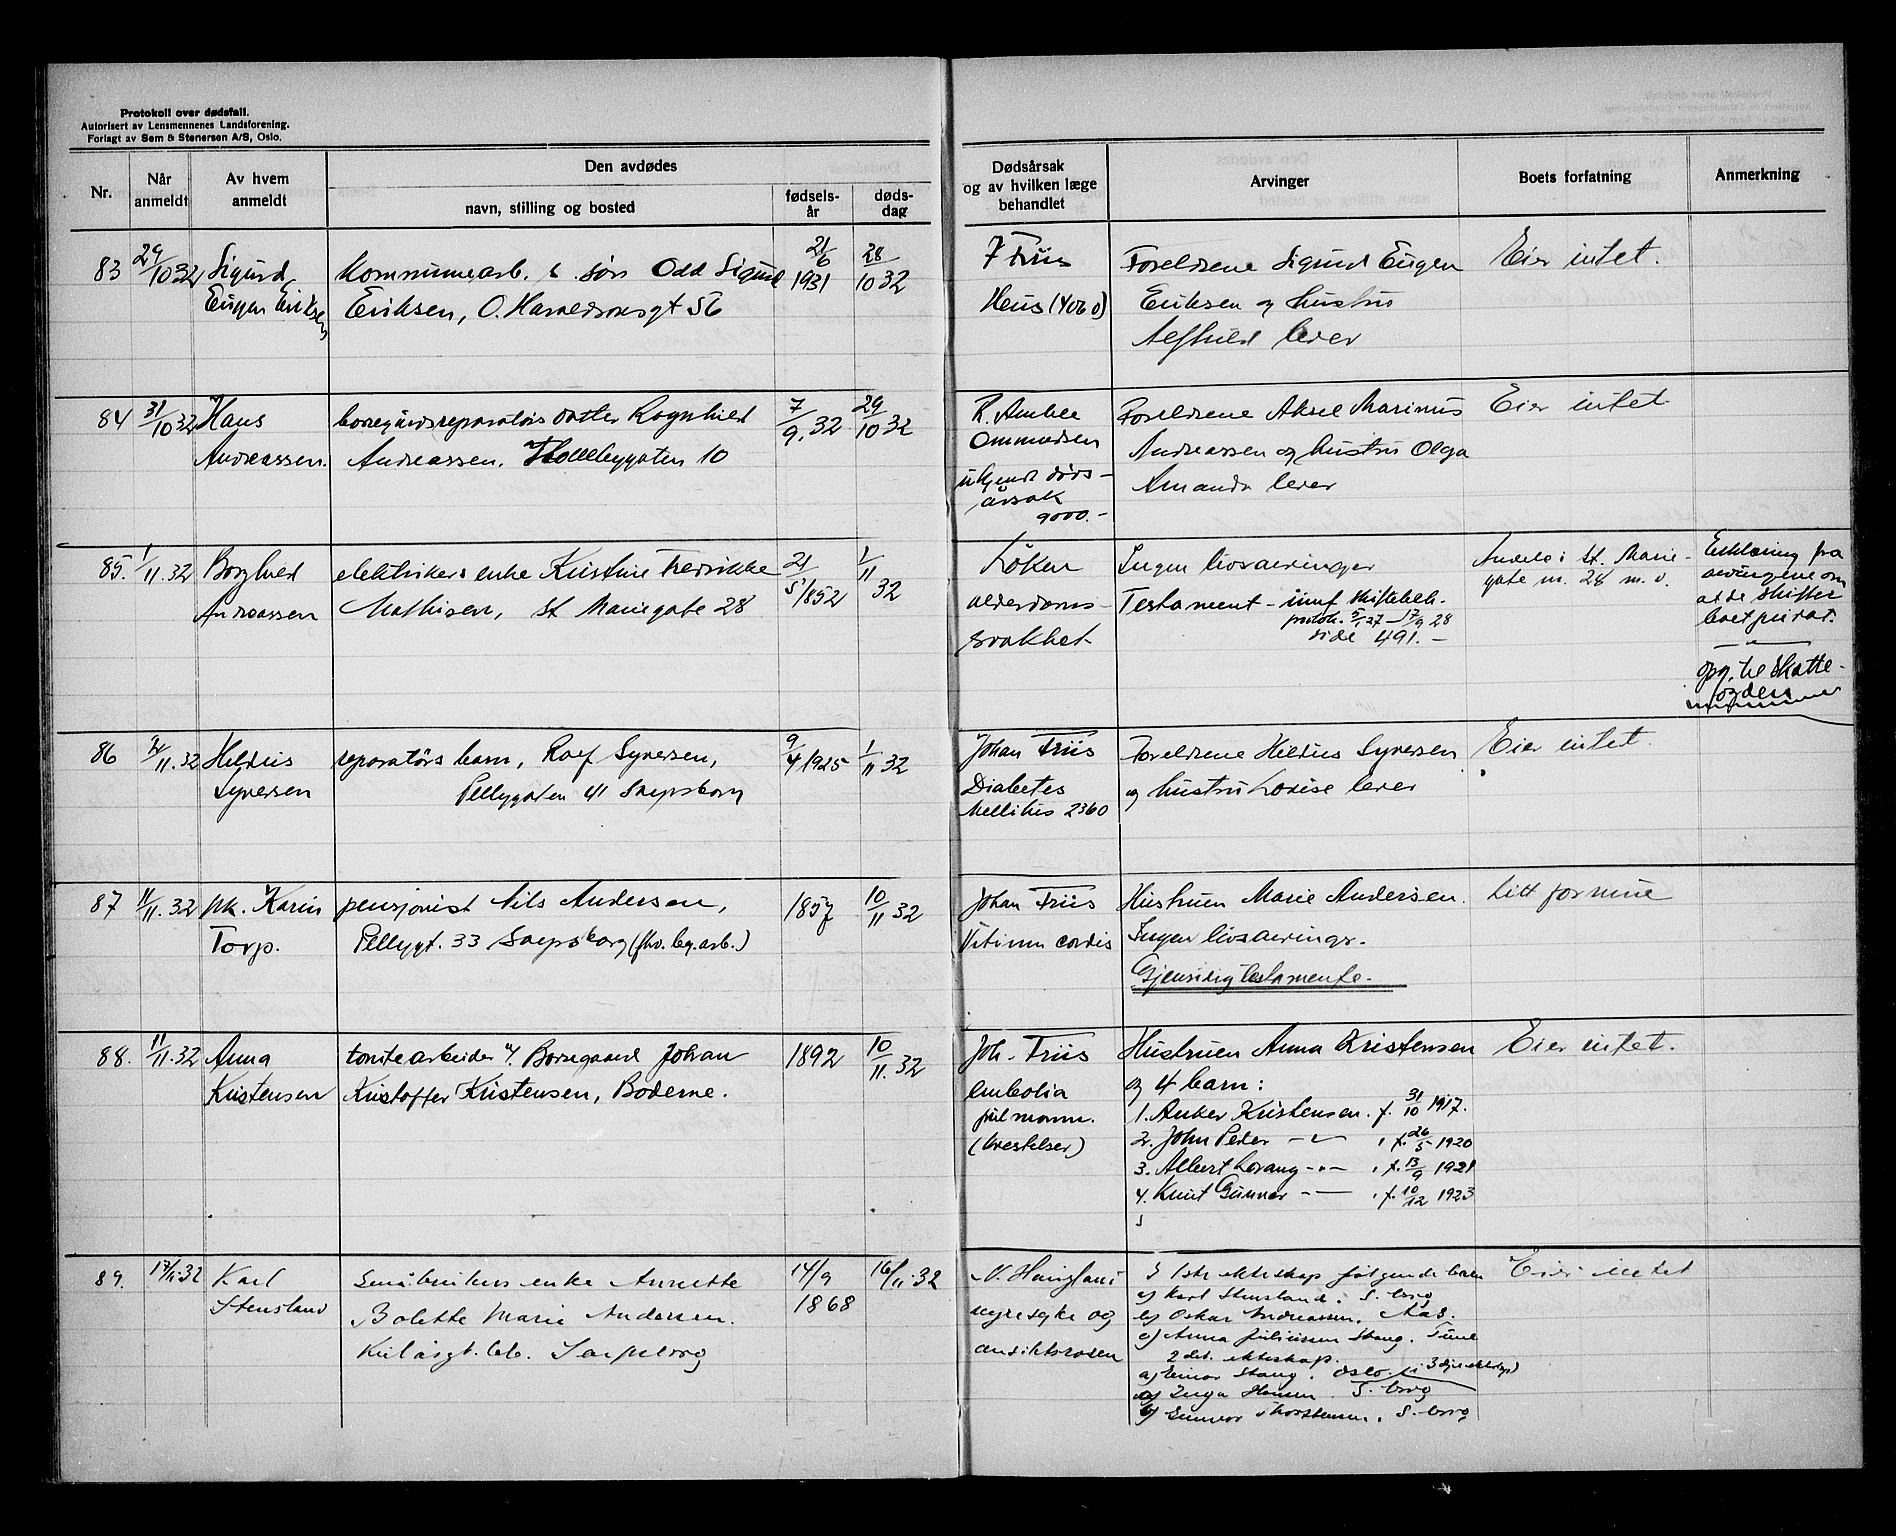 Protokoll over dødsfall.
Autorisert av Lensmennenes Landsforening.
Forlagt av Sem & Stenersen A/S, Oslo.
Nr.
Når anmeldt
Av hvem anmeldt
Den avdødes
navn, stilling og bosted
fødsels-år
døds-dag
Dødsårsak og av hvilken læge behandlet
Arvinger
Boets forfatning
Anmerkning
83 29/10 32 Sigurd Kommunearb. s. sønn Odd Sigurd 21/6 1931 28/10 32
Eugen Eriksen Eriksen, O. Haraldsonsgt 56
J Friis Foreldrene Sigurd Eugen Eier intet.
Eriksen og hustru
lever
84 31/10 32 Hans borregårdsreparatørs datter Ragnhild 7/9. 32 29/10 32
Andreassen. Andreassen, Hollebygaten 10
R. Amble Foreldrene Aksel Marinus Eier intet.
Ommundsen Andreassen og hustru Olga
ukjent døds- Amanda lever
årsak
9000.-
85. 1/11. 32 Borghild elektrikers enke Kristine Fredrikke 21/5 1852 1/11 32
Andreassen Mathisen, St Mariegate 28
Løken Ingen livsarvinger Andel i St. Marie-
alderdoms- Testament - innf skiftebeh. gate nr. 28 m.v.
svakhet protok. 5/1 27 - 17/9 28
side 491.-
Erklæring fra
arvingene om
at de skifter
boet privat.
opg. til skatte-
86 2/11. 32 Hildus reparatørs barn, Rolf Syversen, 9/4 1925 1/11 32
Syversen Pellygaten 41 Sarpsborg
Johan Friis Foreldrene Hildus Syversen Eier intet.
Diabetes og hustru Lovise lever
Mellitus 2360
87 11/11. 32 Karin pensjonist Nils Andersen, 1857 10/11 32
Torp. Pellygt. 33 Sarpsborg (fhv. bg. arb.)
Johan Friis Hustruen Marie Andersen. Litt formue
Vitium cordis Ingen livsarvinger.
Gjensidig testamente.
88. 11/11. 32 Anna tomtearbeider v/ Borregaard Johan 1892 10/11. 32
Kristensen Kristoffer Kristensen, Boderne.
Joh. Friis Hustruen Anna Kristensen Eier intet.
embolia og 4 barn:
pulmonum. 1. Anker Kristensen. f. 31/10 1917.
2. John Peder -"- , f. 26/5 1920
3. Albert Lorang -"- , f. 13/9 1921
4. Knut Gunnar -"- , f. 10/12 1923
89. 17/11 32 Karl Småbrukers enke Annette 14/9 1868 16/11 32
Stensland Bolette Marie Andersen.
Sarpsborg
nyresyke og I 1ste ekteskap følgende barn Eier intet
ansiktsrosen a) Karl Stensland. S. borg
b) Oskar Andreassen. Aas.
c) Anna Juliussen Stang. Tune
2det. ekteskap.
a) Einar Stang. Oslo
Inga Hansen. S. borg
S. borg